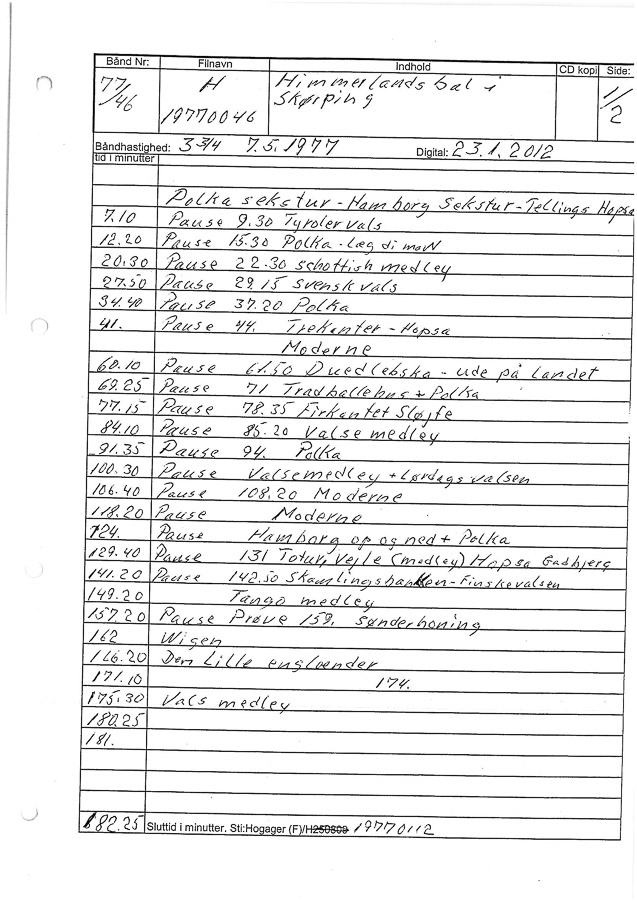 Bånd Nr: Filnavn Indhold CD kopi Side:
77/46 H Himmerlandsbal i 1/2
19770046 Skørping
Båndhastighed: 3 3/4 7.5.1977 Digital: 23.1.2012
tid i minutter
Polka sekstur - Hamborg Sekstur - Tellings Hopsa
7.10 Pause 9.30 Tyroler vals
12.20 Pause 15.30 Polka - læg di mow
20.30 Pause 22.30 schottish medley
27.50 Pause 29.15 svensk vals
34.40 Pause 37.20 Polka
41. Pause 44. Trekanter - Hopsa
Moderne
60.10 Pause 61.50 Duedlebska - ude på landet
69.25 Pause 71 Tradballehus + Polka
77.15 Pause 78.35 Firkantet Sløjfe
84.10 Pause 85.20 Valse medley
91.35 Pause 94. Polka
100.30 Pause Valsemedley + Lørdagsvalsen
106.40 Pause 108.20 Moderne
118.20 Pause Moderne
124. Pause Hamborg op og ned + Polka
129.40 Pause 131 Totur, Vejle (medley) Hopsa Gadbjerg
141.20 Pause 142.50 Skamlingsbanken - Finskevalsen
149.20 Tango medley
157.20 Pause Prøve 159. sønderhoning
162 Wigen
166.20 Den Lille englænder
171.10 174.
175.30 Vals medley
180.25
181.
182.25 Sluttid i minutter. Sti:Hogager (F)/H250609 19770112